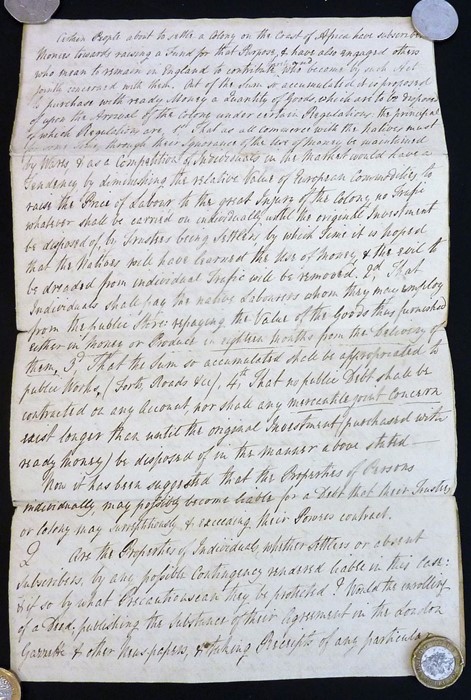 Certain People about to settle a Colony on the Coast of Africa have subscribed
Monies towards raising a Fund for that Purpose, & have also engaged others
who mean to remain in England to contribute become by such Act
jointly concerned with them. Out of the Sum so accumulated it is proposed
to purchase with ready Money a Quantity of Goods, which are to be disposed
of upon the Arrival of the Colony under certain Regulations. the principal
of which Regulations are, 1st That as all commerce with the Natives must
for some time, through their Ignorance of the Use of Money be maintained
by Wares, & as a Competition of Individuals in the Market would have a
Tendency by diminishing the relative Value of European Commodities to
raise the Price of Labour to the great Injury of the Colony, no Trafic
whatever shall be carried on individually until the original Investment
be disposed of, by Trustees being settlers, by which Time it is hoped
that the Natives will have learned the Use of Money, & the evil to
be dreaded from individual Trafic will be removed. 2nd That
Individuals shall pay the native Labourers whom they may employ
from the public Store: repaying the Value of the Goods thus furnished
either in Money or Produce in eighteen Months from the Delivery of
them. 3d That the Sum so accumulated shall be appropriated to
public Works, (Forts, Roads &c), 4th That no public Debt shall be
contracted on any Account, nor shall any mercantile joint Concern
exist longer than until the original Investment (purchased with
ready Money) be disposed of in the manner above stated
Now it has been suggested that the Properties of Persons
individually may possibly become liable for a Debt that their Trustees
or Colony may surreptitiously & exceeding their Powers contract.
Q Are the Properties of Individuals, whether Settlers or absent
subscribers, by any possible Contingency rendered liable in this Case:
& if so by what Precautions can they be protected? Would the enrolling
of a Deed, publishing the Substance of their Agreement in the London
Gazette & other News papers, & taking Receipts of any particular